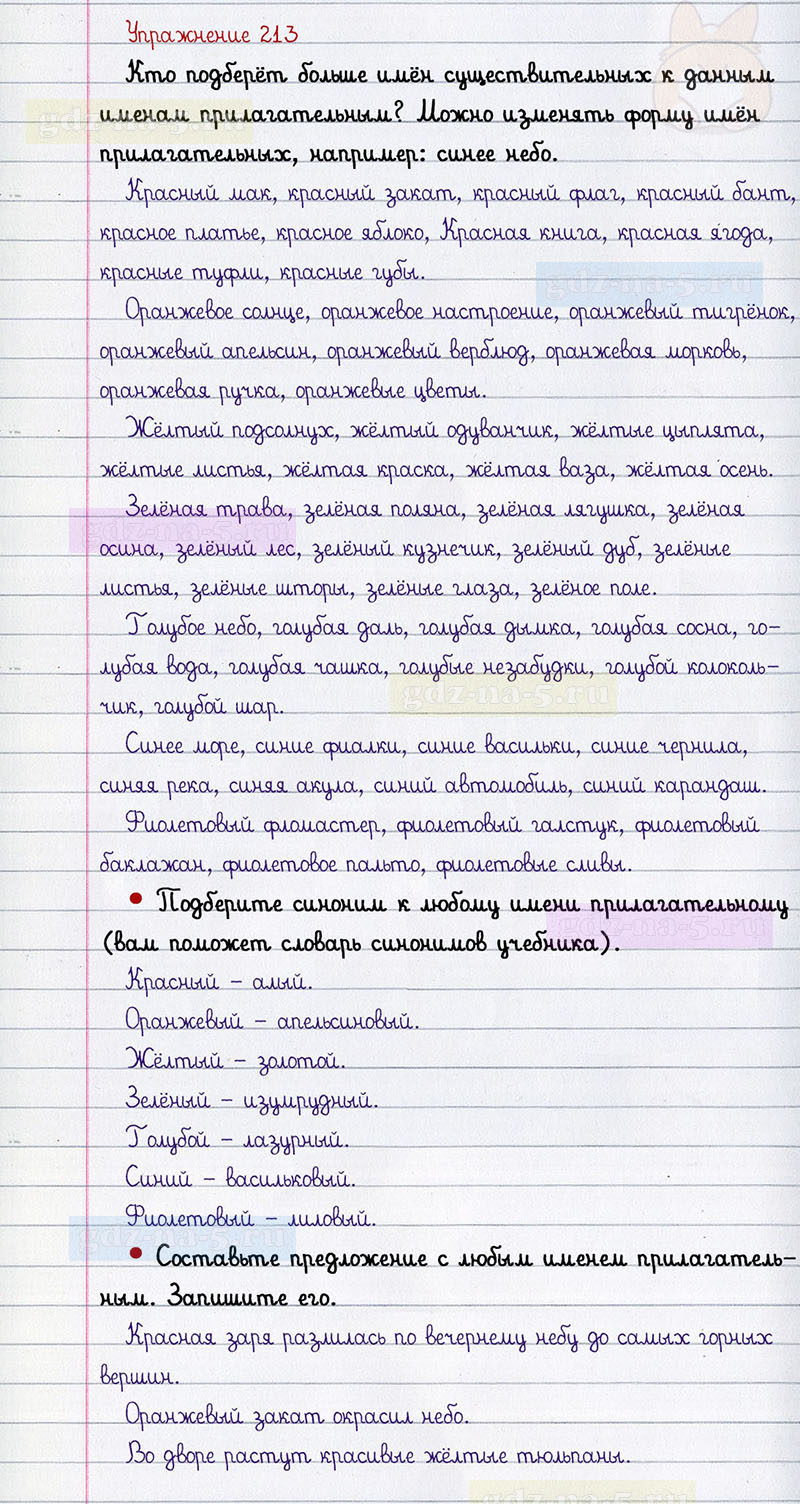 Упражнение 213
Кто подберёт больше имён существительных к данным
именам прилагательным? Можно изменять форму имён
прилагательных, например: синее небо.
Красный мак, красный закат, красный флаг, красный бант,
красное платье, красное яблоко, Красная книга, красная ягода,
красные туфли, красные губы.
Оранжевое солнце, оранжевое настроение, оранжевый тигрёнок,
оранжевый апельсин, оранжевый верблюд, оранжевая морковь,
оранжевая ручка, оранжевые цветы.
Жёлтый подсолнух, жёлтый одуванчик, жёлтые цыплята,
жёлтые листья, жёлтая краска, жёлтая ваза, жёлтая осень.
Зелёная трава, зелёная поляна, зелёная лягушка, зелёная
осина, зелёный лес, зелёный кузнечик, зелёный дуб, зелёные
листья, зелёные шторы, зелёные глаза, зелёное поле.
Голубое небо, голубая даль, голубая дымка, голубая сосна, го-
лубая вода, голубая чашка, голубые незабудки, голубой колоколь-
чик, голубой шар.
Синее море, синие фиалки, синие васильки, синие чернила,
синяя река, синяя акула, синий автомобиль, синий карандаш.
Фиолетовый фломастер, фиолетовый галстук, фиолетовый
баклажан, фиолетовое пальто, фиолетовые сливы.
• Подберите синоним к любому имени прилагательному
(вам поможет словарь синонимов учебника).
Красный – алый.
Оранжевый – апельсиновый.
Жёлтый – золотой.
Зелёный – изумрудный.
Голубой – лазурный.
Синий – васильковый.
Фиолетовый – лиловый.
• Составьте предложение с любым именем прилагатель-
ным. Запишите его.
Красная заря разлилась по вечернему небу до самых горных
вершин.
Оранжевый закат окрасил небо.
Во дворе растут красивые жёлтые тюльпаны.
gdz-na-5.ru
gdz-na-5.ru
gdz-na-5.ru
gdz-na-5.ru
gdz-na-5.ru
gdz-na-5.ru
gdz-na-5.ru